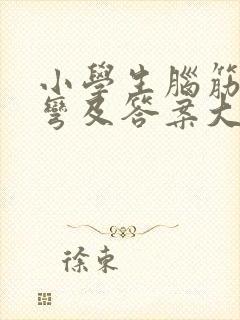 小學生腦筋
彎及答案大
徐東